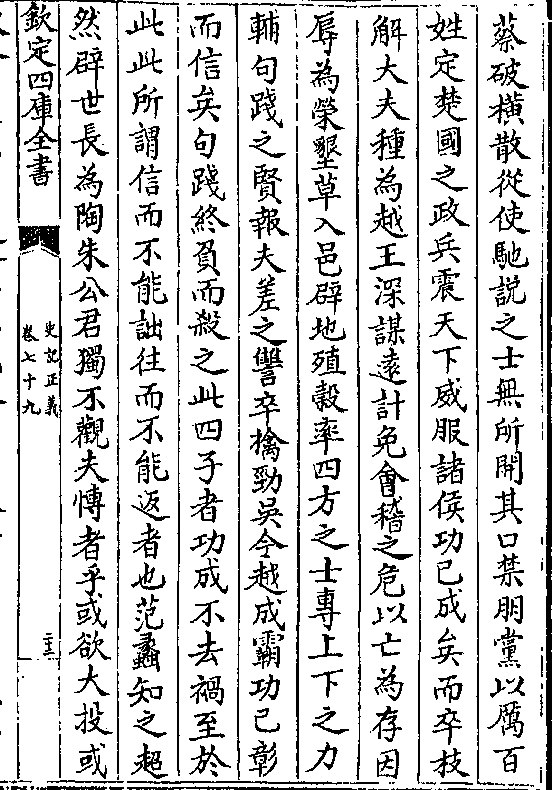 蔡破橫散從使馳說之士無所開其口禁朋黨以厲百
姓定楚國之政兵震天下威服諸侯功已成矣而卒枝
解大夫種為越王深謀遠計免會稽之危以亡為存因
辱為榮墾草入邑辟地殖穀率四方之士專上下之力
輔句踐之賢報夫差之讐卒擒勁吳令越成霸功已彰
而信矣句踐終負而殺之此四子者功成不去禍至於
此此所謂信而不能詘往而不能返者也范蠡知之超
然辟世長為陶朱公君獨不觀夫慱者乎或欲大投或
欽定四庫全書
史記正義
卷七十九
二十三